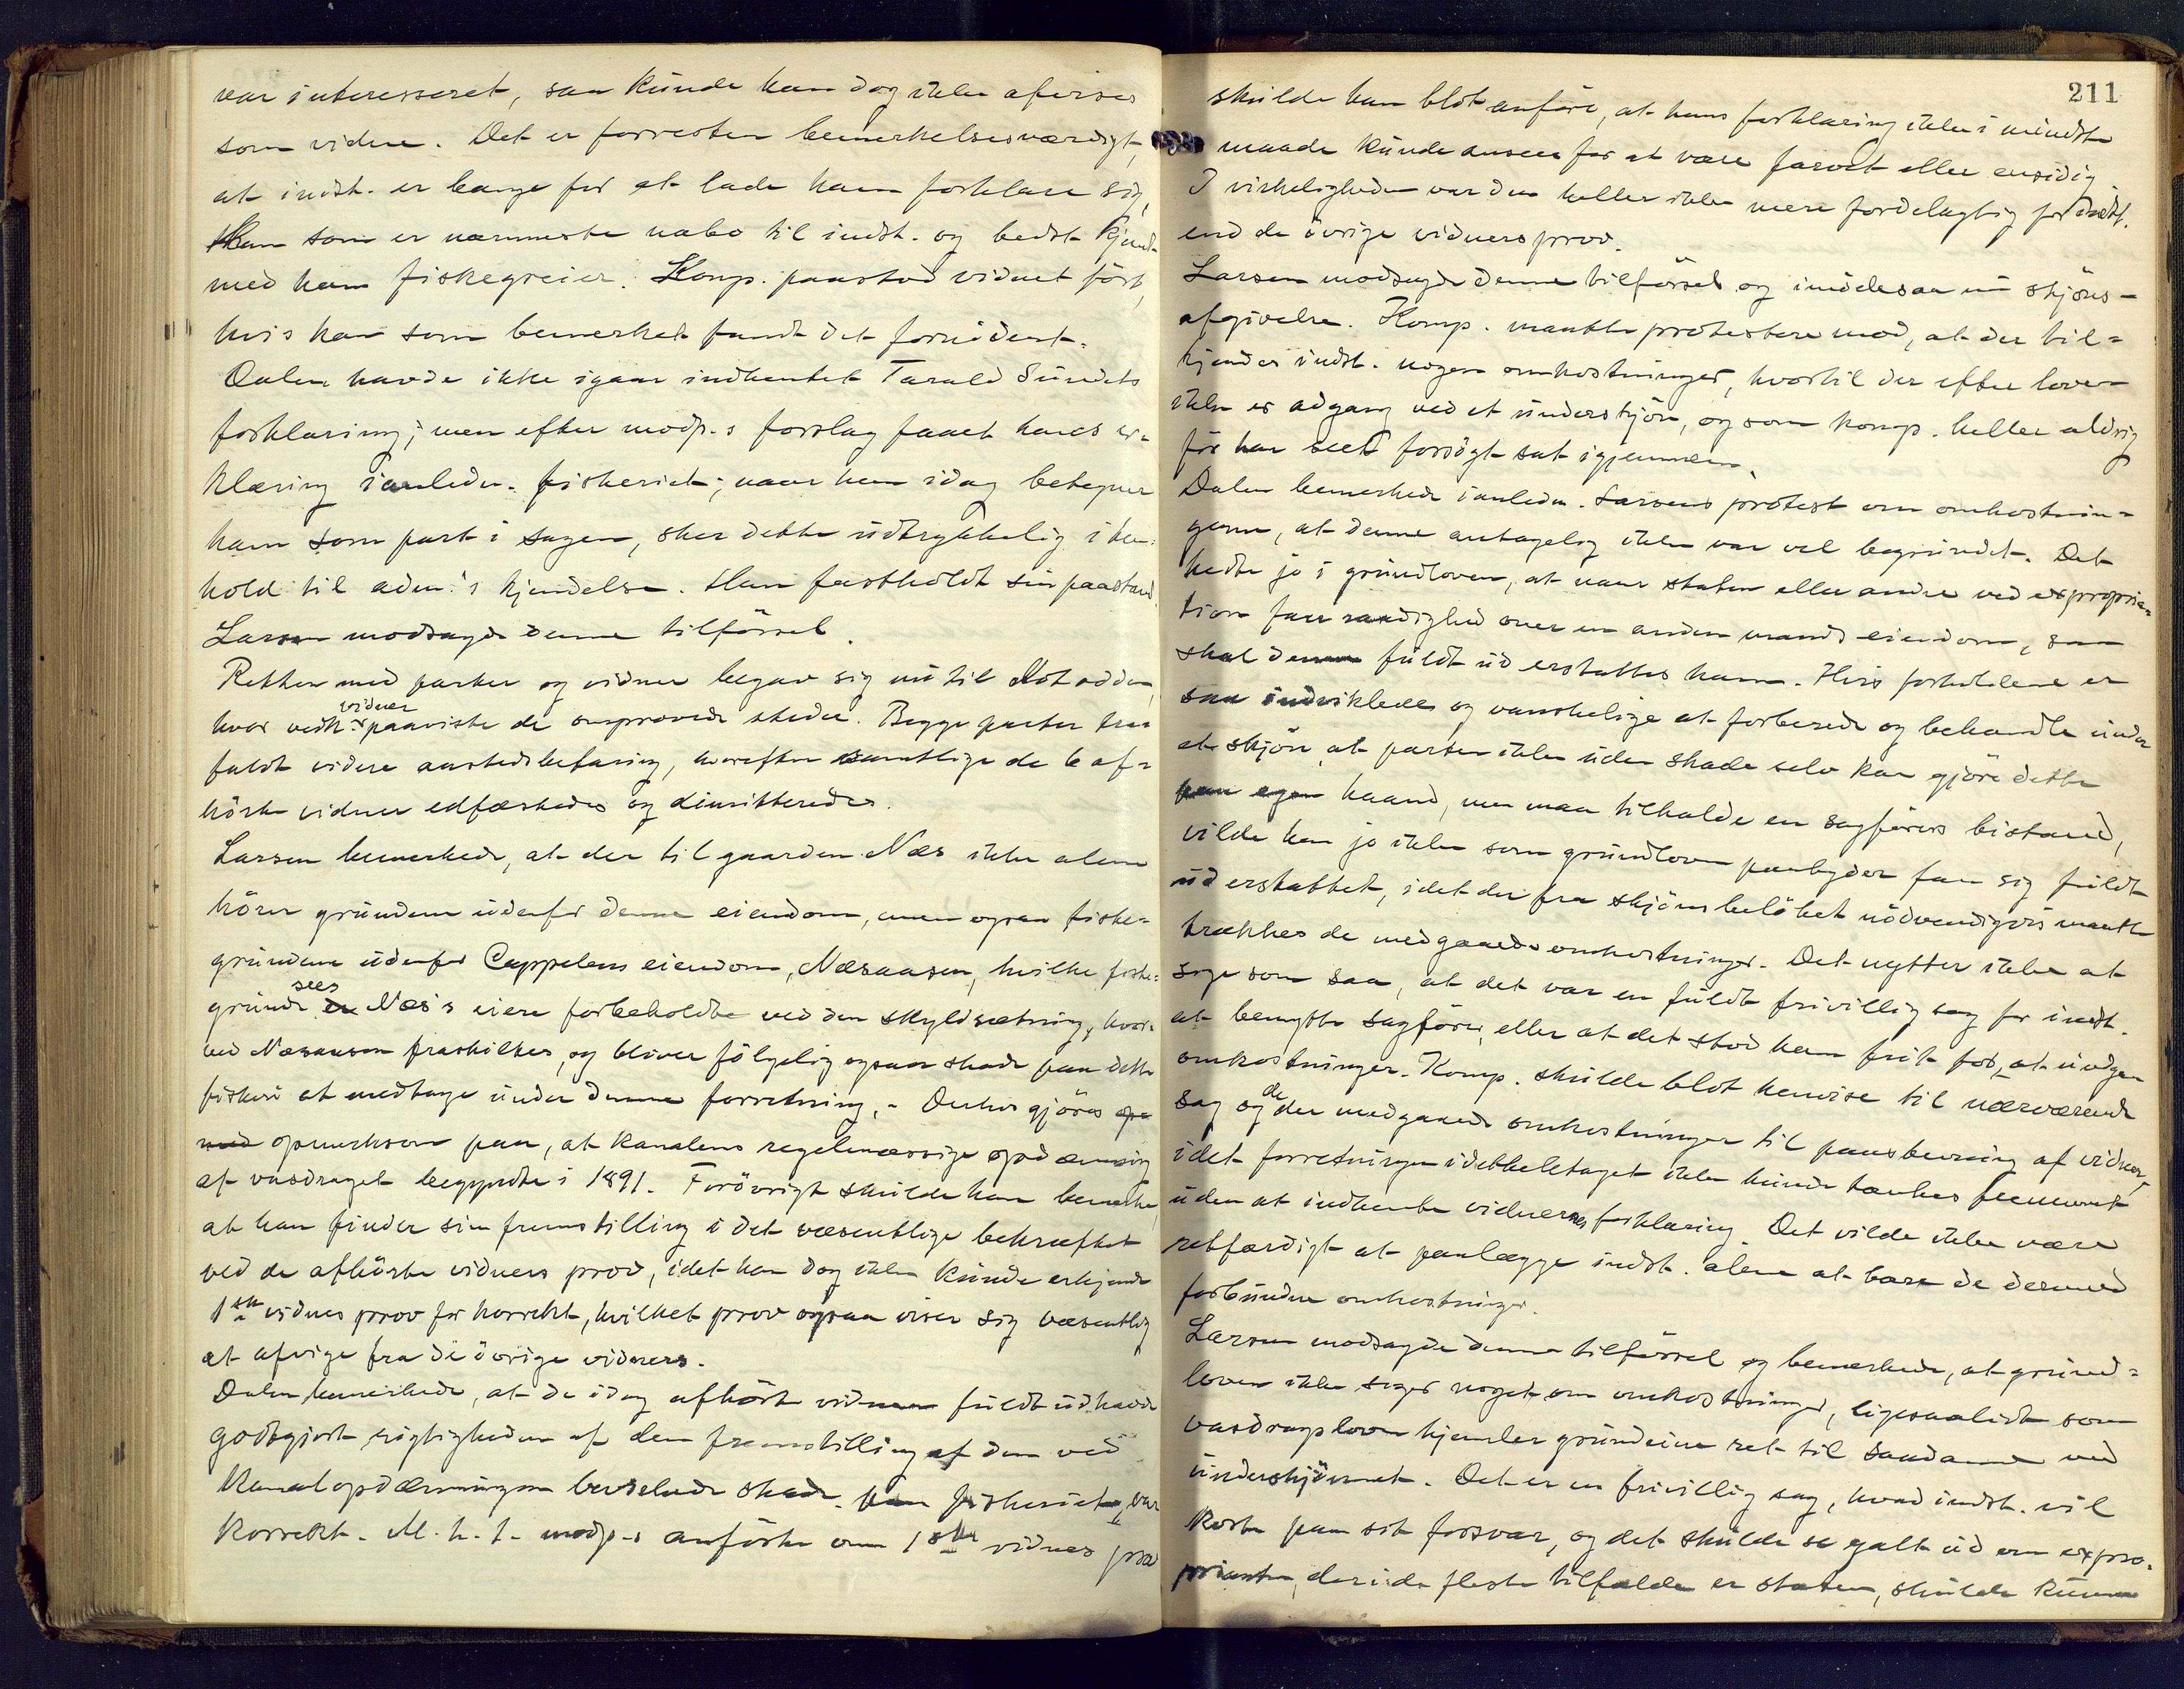 var interesseret, saa kunde han dog ikke afvises
som vidne. Det er forresten bemerkelsesværdigt,
at indst. er bange for at lade ham forklare sig,
Han som er nærmeste nabo til indst. og bedst kjendt
med hans fiskegreier. Komp. paastod vidnet ført,
hvis han som bemerket fandt det fornødent.
Dalen havde ikke igaar indhentet Tarald Sundets
forklaring; men efter modp.s forslag faaet hans er-
klæring i anledn. fiskeriet; naar han idag betegner
ham som part i sagen, sker dette udtrykkelig i hen-
hold til adm.'s kjendelse. Han fastholdt sin paastand.
Larsen modsagde denne tilførsel.
Retten med parter og vidner begav sig nu til Notodden,
hvor vedk. vidner paaviste de omprovede steder. Begge parter fra-
faldt videre aastedsbefaring, hvorefter samtlige de 6 af-
hørte vidner edfæstedes og dimitteredes.
Larsen bemerkede, at der til gaarden Næs ikke alene
hører grunden udenfor denne eiendom, men ogsaa fiske-
grunden udenfor Cappelens eiendom, Næsaasen, hvilke fiske-
grunde sees Næs's eiere forbeholdte ved den skyldsætning, hvor-
ved Næsaasen fraskiltes, og bliver følgelig ogsaa skade paa dette
fiskeri at medtage under denne forretning. - Derhos gjøres op-
merksom paa, at kanalens regelmæssige opdæmning
af vasdraget begyndte i 1891. Forøvrigt skulde han bemerke,
at han finder sin fremstilling i det væsentlige bekræftet
ved de afhørte vidners prov, idet han dog ikke kunde erkjende
1ste vidnes prov for korrekt, hvilket prov ogsaa viser sig væsentlig
at afvige fra de øvrige vidners.
Dalen bemerkede, at de idag afhørte vidner fuldt ud havde
godtgjort rigtigheden af den fremstilling af den ved
kanalopdæmningen bevoldede skade paa fiskeriet, var
korrekt. M. h. t. modp.s anførte om 1ste vidnes prov
211
skulde han blot anføre, at hans forklaring ikke i mindste
maade kunde ansees for at være farvet eller ensidig
I virkeligheden var den heller ikke mere fordelagtig for indst.
end de øvrige vidners prov.
Larsen modsagde denne tilførsel og imødesaa nu skjøns-
afgivelse. Komp. maatte protestere mod, at der til-
kjendes indst. nogen omkostninger, hvortil der efter loven
ikke er adgang ved et underskjøn, og som komp. heller aldrig
før har seet forsøgt sat igjennem.
Dalen bemerkede i anledn. Larsens protest om omkostnin-
gerne, at denne antagelig ikke var vel begrundet. Det
hedte jo i grundloven, at naar staten eller andre ved expropria-
tion faar raadighed over en anden mands eiendom, saa
skal denne fuldt ud erstattes ham. Hvis forholdene er
saa indviklede og vanskelige at forberede og behandle under
et skjøn, at parten ikke uden skade selv kan gjøre dette
paa egen haand, men maa tilkalde en sagførers bistand,
vilde han jo ikke som grundloven paabyder faa sig fuldt
ud erstattet, idet der fra skjønsbeløbet nødvendigvis maatte
trækkes de medgaaede omkostninger. Det nytter ikke at
sige som saa, at det var en fuldt frivillig sag for indst.
at benytte sagfører, eller at det stod ham frit for, at undgaa
omkostninger. Komp. skulde blot henvise til nærværende
sag og de der medgaaede omkostninger til paastevning af vidner,
idet forretningen idethele taget ikke kunde tænkes fremmet
uden at indhente vidnernes forklaring. Det vilde ikke være
retfærdigt at paalægge indst. alene at bære de dermed
forbundne omkostninger.
Larsen modsagde denne tilførsel og bemerkede, at grund-
loven ikke siger noget om omkostninger, ligesaalidt som
vasdragsloven hjemler grundeiere ret til saadanne ved
underskjønnet. Det er en frivillig sag, hvad indst. vil
koste paa sit forsvar, og det skulde se galt ud om expro-
prianten, der i de fleste tilfælde er staten, skulde kunne